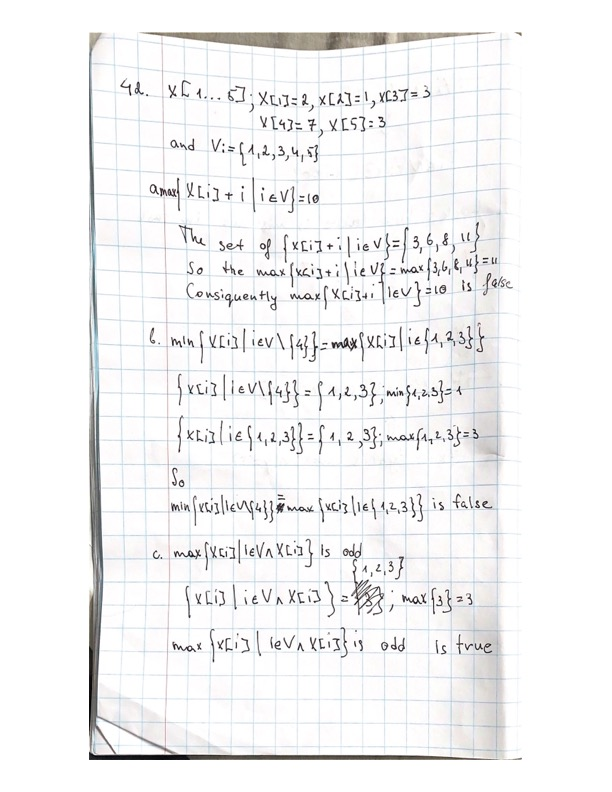 4a. X[1...5]; X[1]=2, X[2]=1, X[3]=3
X[4]=7, X[5]=3
and V:={1,2,3,4,5}
a max{X[i]+i | i∈V}=10
The set of {X[i]+i | i∈V}={3,6,8,11}
So the max{x[i]+i | i∈V}=max{3,6,8,11}=11
Consiquently max{X[i]+i | i∈V}=10 is false
b. min{X[i] | i∈V\{4}}=max{X[i] | i∈{1,2,3}}
{x[i] | i∈V\{4}}={1,2,3}; min{1,2,3}=1
{x[i] | i∈{1,2,3}}={1,2,3}; max{1,2,3}=3
So
min{x[i] | i∈V\{4}}=max{x[i] | i∈{1,2,3}} is false
c. max{X[i] | i∈V∧X[i]} is odd
{1,2,3}
{x[i] | i∈V∧X[i]}= ; max{3}=3
max{x[i] | i∈V∧X[i]} is odd is true